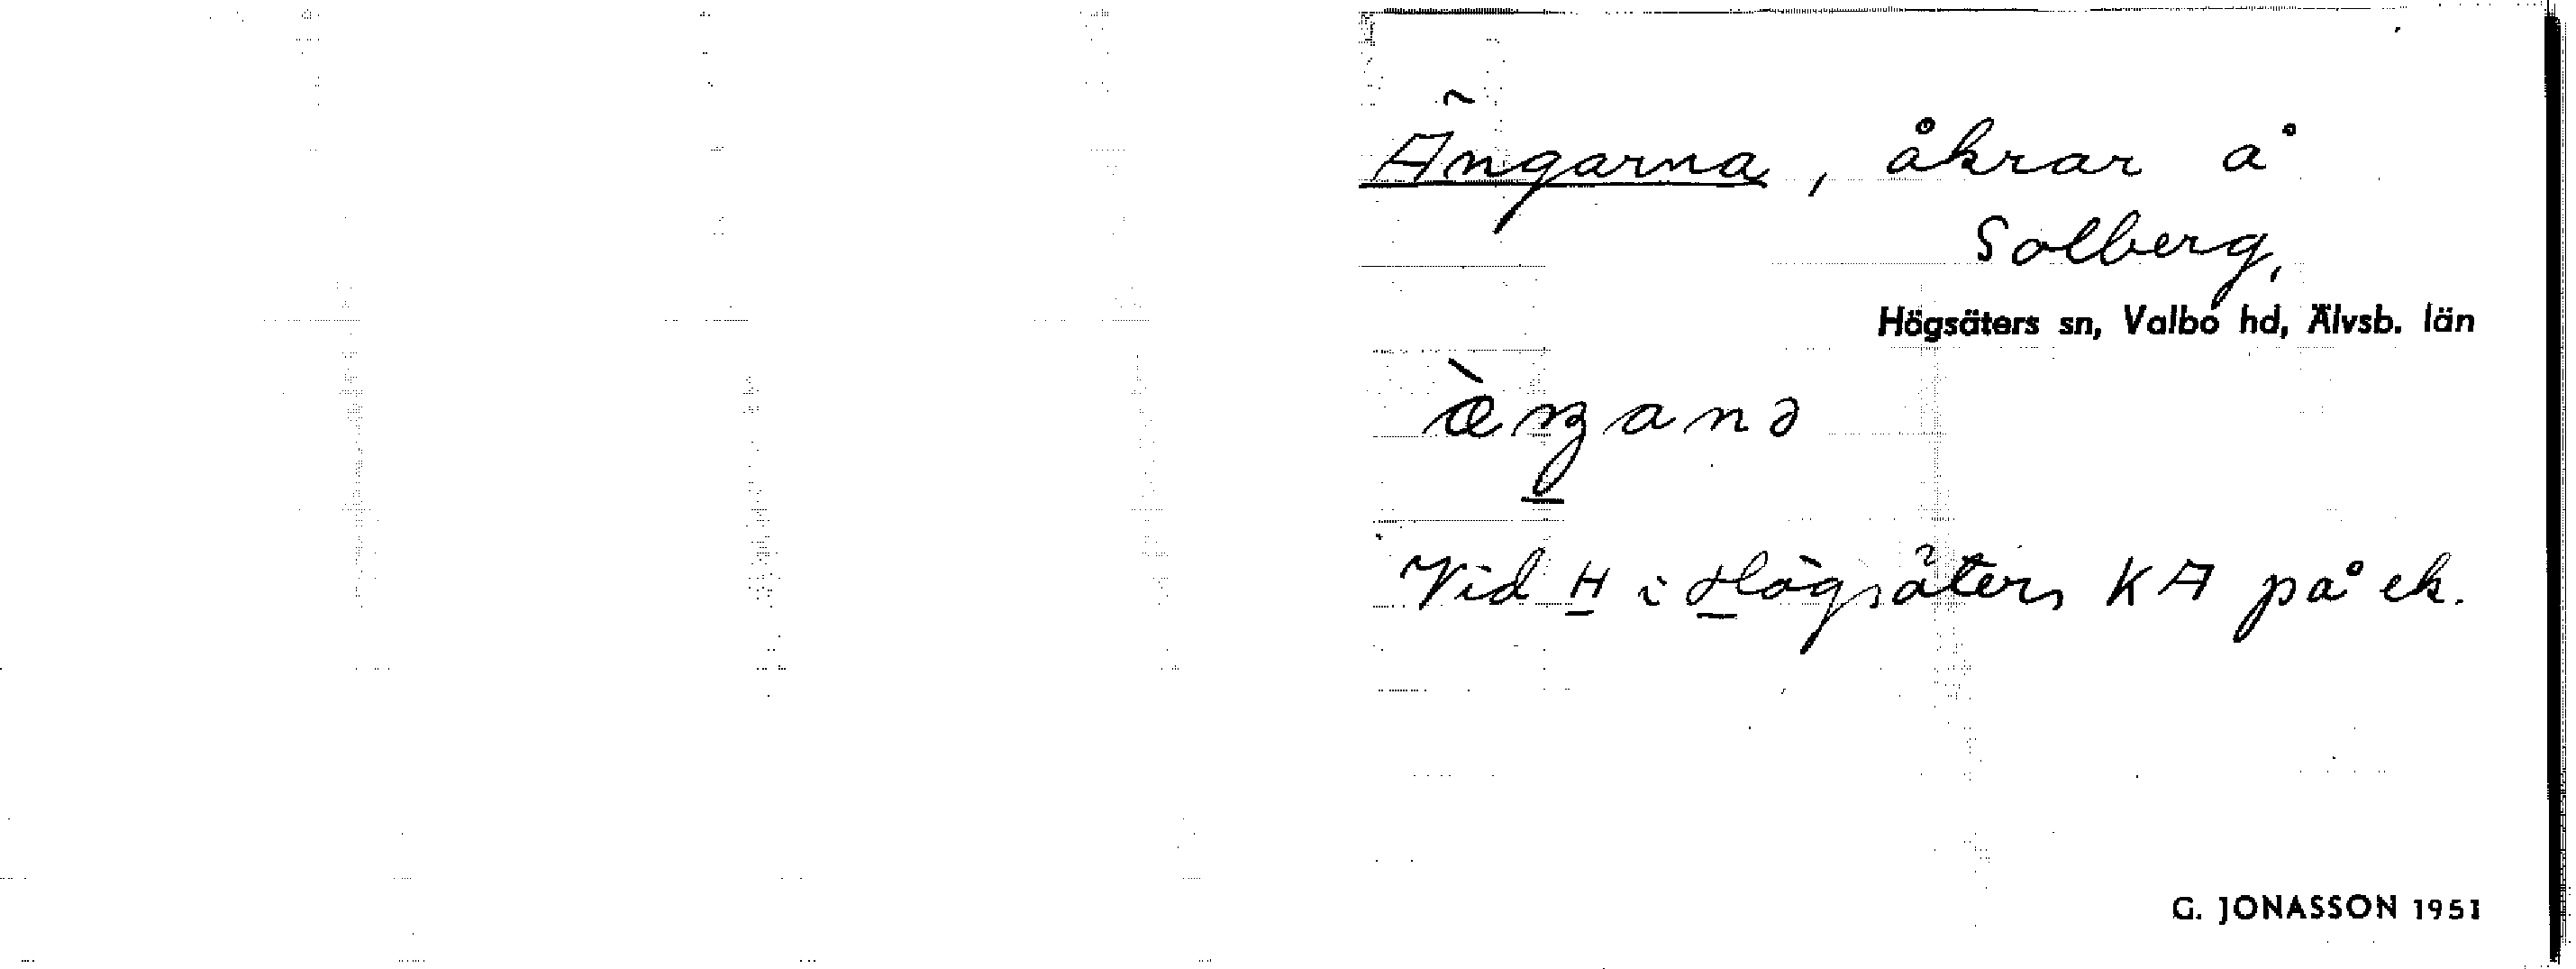 Ängarna, åkrar å
Solberg,
Högsäters sn, Valbo hd, Älvsb. län
Vid H i Högsäters KA på ek.
G. JONASSON 1951